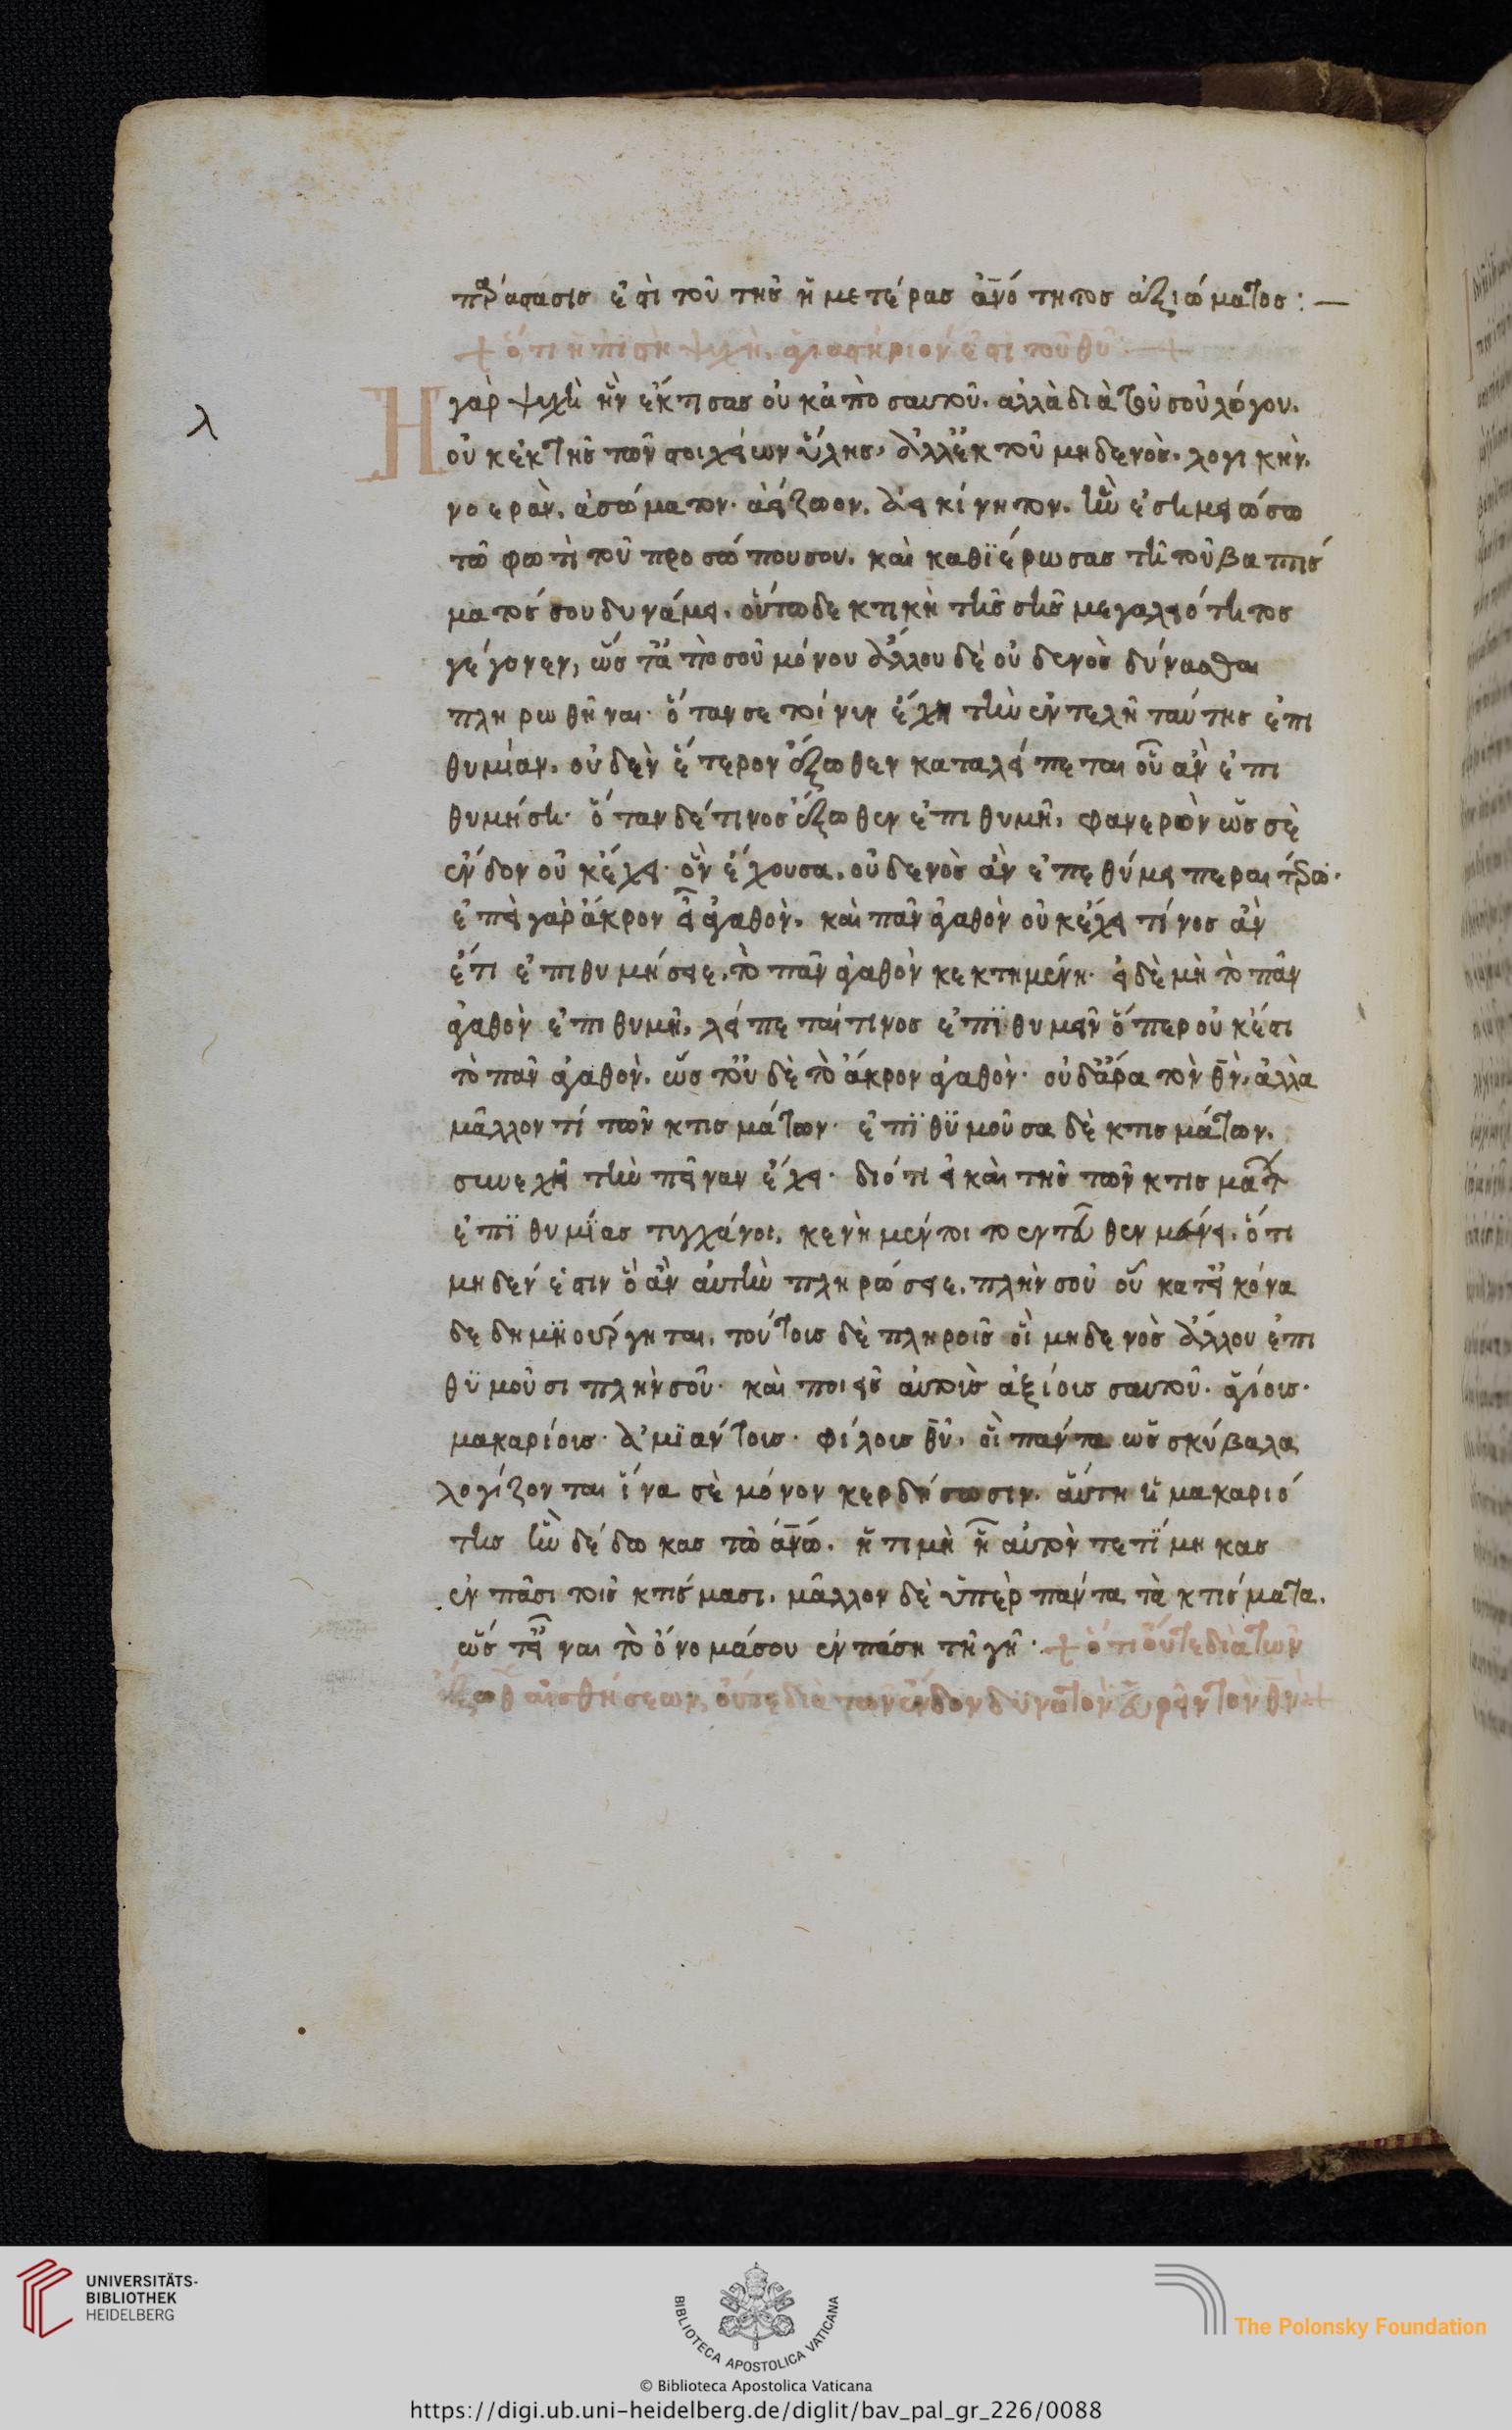 παράστασις ἐστὶ τοῦ τῆς ἡμετέρας ἀν̅ότητος ἀξιώματος :—
+ ὅτι ἡ πιστὴ ψυχὴ, ἁγιαστήριόν ἐστι τοῦ θυ̅ :—+
Η γὰρ ψυχὴ ἣν ἔκτισας οὐκ ἀπὸ σαυτοῦ. ἀλλὰ διὰ τοῦ σοῦ λόγου.
λ
οὐκ ἐκ τῆς τῶν στοιχείων ὕλης, ἀλλ' ἐκ τοῦ μηδενὸς. λογικὴν.
νοερὰν. ἀσώματον. ἀείζωον. ἀεικίνητον. ἣν ἐσημειώσω
τῷ φωτὶ τοῦ προσώπου σου. καὶ καθϊέρωσας τῆ τοῦ βαπτίσ
ματός σου δυνάμει. οὕτω δεκτικὴ τῆς σῆς μεγαλειότητος
γέγονεν, ὥστ' ἀπὸ σοῦ μόνου ἄλλου δὲ οὐδενὸς δύνασθαι
πληρωθῆναι. ὅταν σε τοίνυν ἔχη τὴν ἐντελῆ ταύτης ἐπι
θυμίαν. οὐδὲν ἕτερον ἔξωθεν καταλείπεται οὗ ἂν ἐπι
θυμήση. ὅταν δέ τινος ἔξωθεν ἐπιθυμῆ, φανερὸν ὡς σὲ
ἔνδον οὐκ ἔχει. ὃν ἔχουσα. οὐδενὸς ἂν ἐπεθύμει περαιτέρω.
ἐπεὶ γὰρ ἄκρον εἶ ἀγαθὸν, καὶ πᾶν ἀγαθὸν οὐκ ἔχει τίνος ἂν
ἔτι ἐπιθυμήσειε. τὸ πᾶν ἀγαθὸν κεκτημένη. εἰ δὲ μὴ τὸ πᾶν
ἀγαθὸν ἐπιθυμῆ, λείπεταί τινος ἐπϊθυμεῖν ὅπερ οὐκ ἔστι
τὸ πᾶν ἀγαθὸν. ὥστ' οὐδὲ τὸ ἄκρον ἀγαθὸν. οὐδ' ἄρα τὸν θν̅, ἀλλὰ
μᾶλλον τί τῶν κτισμάτων. ἐπϊθϋμοῦσα δὲ κτισμάτων.
συνεχῆ τὴν πεῖναν ἔχει. διότι εἰ καὶ τῆς τῶν κτισμάτων
ἐπϊθυμίας τυγχάνοι. κενὴ μέντοι τὸ ἐντεῦθεν μένει. ὅτι
μηδέν ἐστιν ὃ ἂν αὐτὴν πληρώσειε. πλὴν σοῦ οὗ κατ' εἰκόνα
δεδημϊούργηται. τούτοις δὲ πληροῖς οἳ μηδενὸς ἄλλου ἐπι
θϋμοῦσι πλὴν σοῦ. καὶ ποιεῖς αὐτοὺς ἀξίους σαυτοῦ. ἁγίους.
μακαρίους. ἀμϊάντους. φίλους θυ̅. οἳ πάντα ὡς σκύβαλα
λογίζονται ἵνα σὲ μόνον κερδήσωσιν. αὕτη ἡ μακαριό
της ἣν δέδωκας τῷ ἀν̅ω. ἡ τιμὴ ᾗ αὐτὸν τετϊμηκας
ἐν πᾶσι τοῖς κτίσμασι. μᾶλλον δὲ ὑπὲρ πάντα τὰ κτίσματα.
ὥστ' εἶναι τὸ ὄνομά σου ἐν πάση τῆ γῆ. + ὅτι οὔτε διὰ τῶν
ἔξωθ αἰσθήσεων, οὔτε διὰ τῶν ἔνδον δϋνατὸν εὑρεῖν τὸν θν̅ +
UNIVERSITÄTS-
BIBLIOTHEK
HEIDELBERG
BIBLIOTECA APOSTOLICA VATICANA
The Polonsky Foundation
© Biblioteca Apostolica Vaticana
https://digi.ub.uni-heidelberg.de/diglit/bav_pal_gr_226/0088